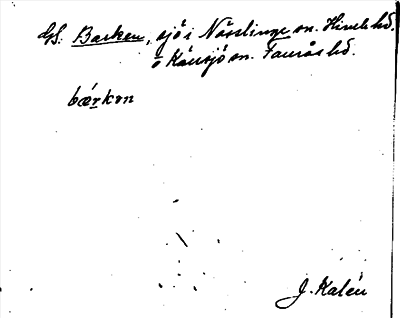 Gs. Barken, sjö i Nösslinge sn. Himle hd.
o Känsjö sn. Faurås hd.
bærkən
J. Kalén